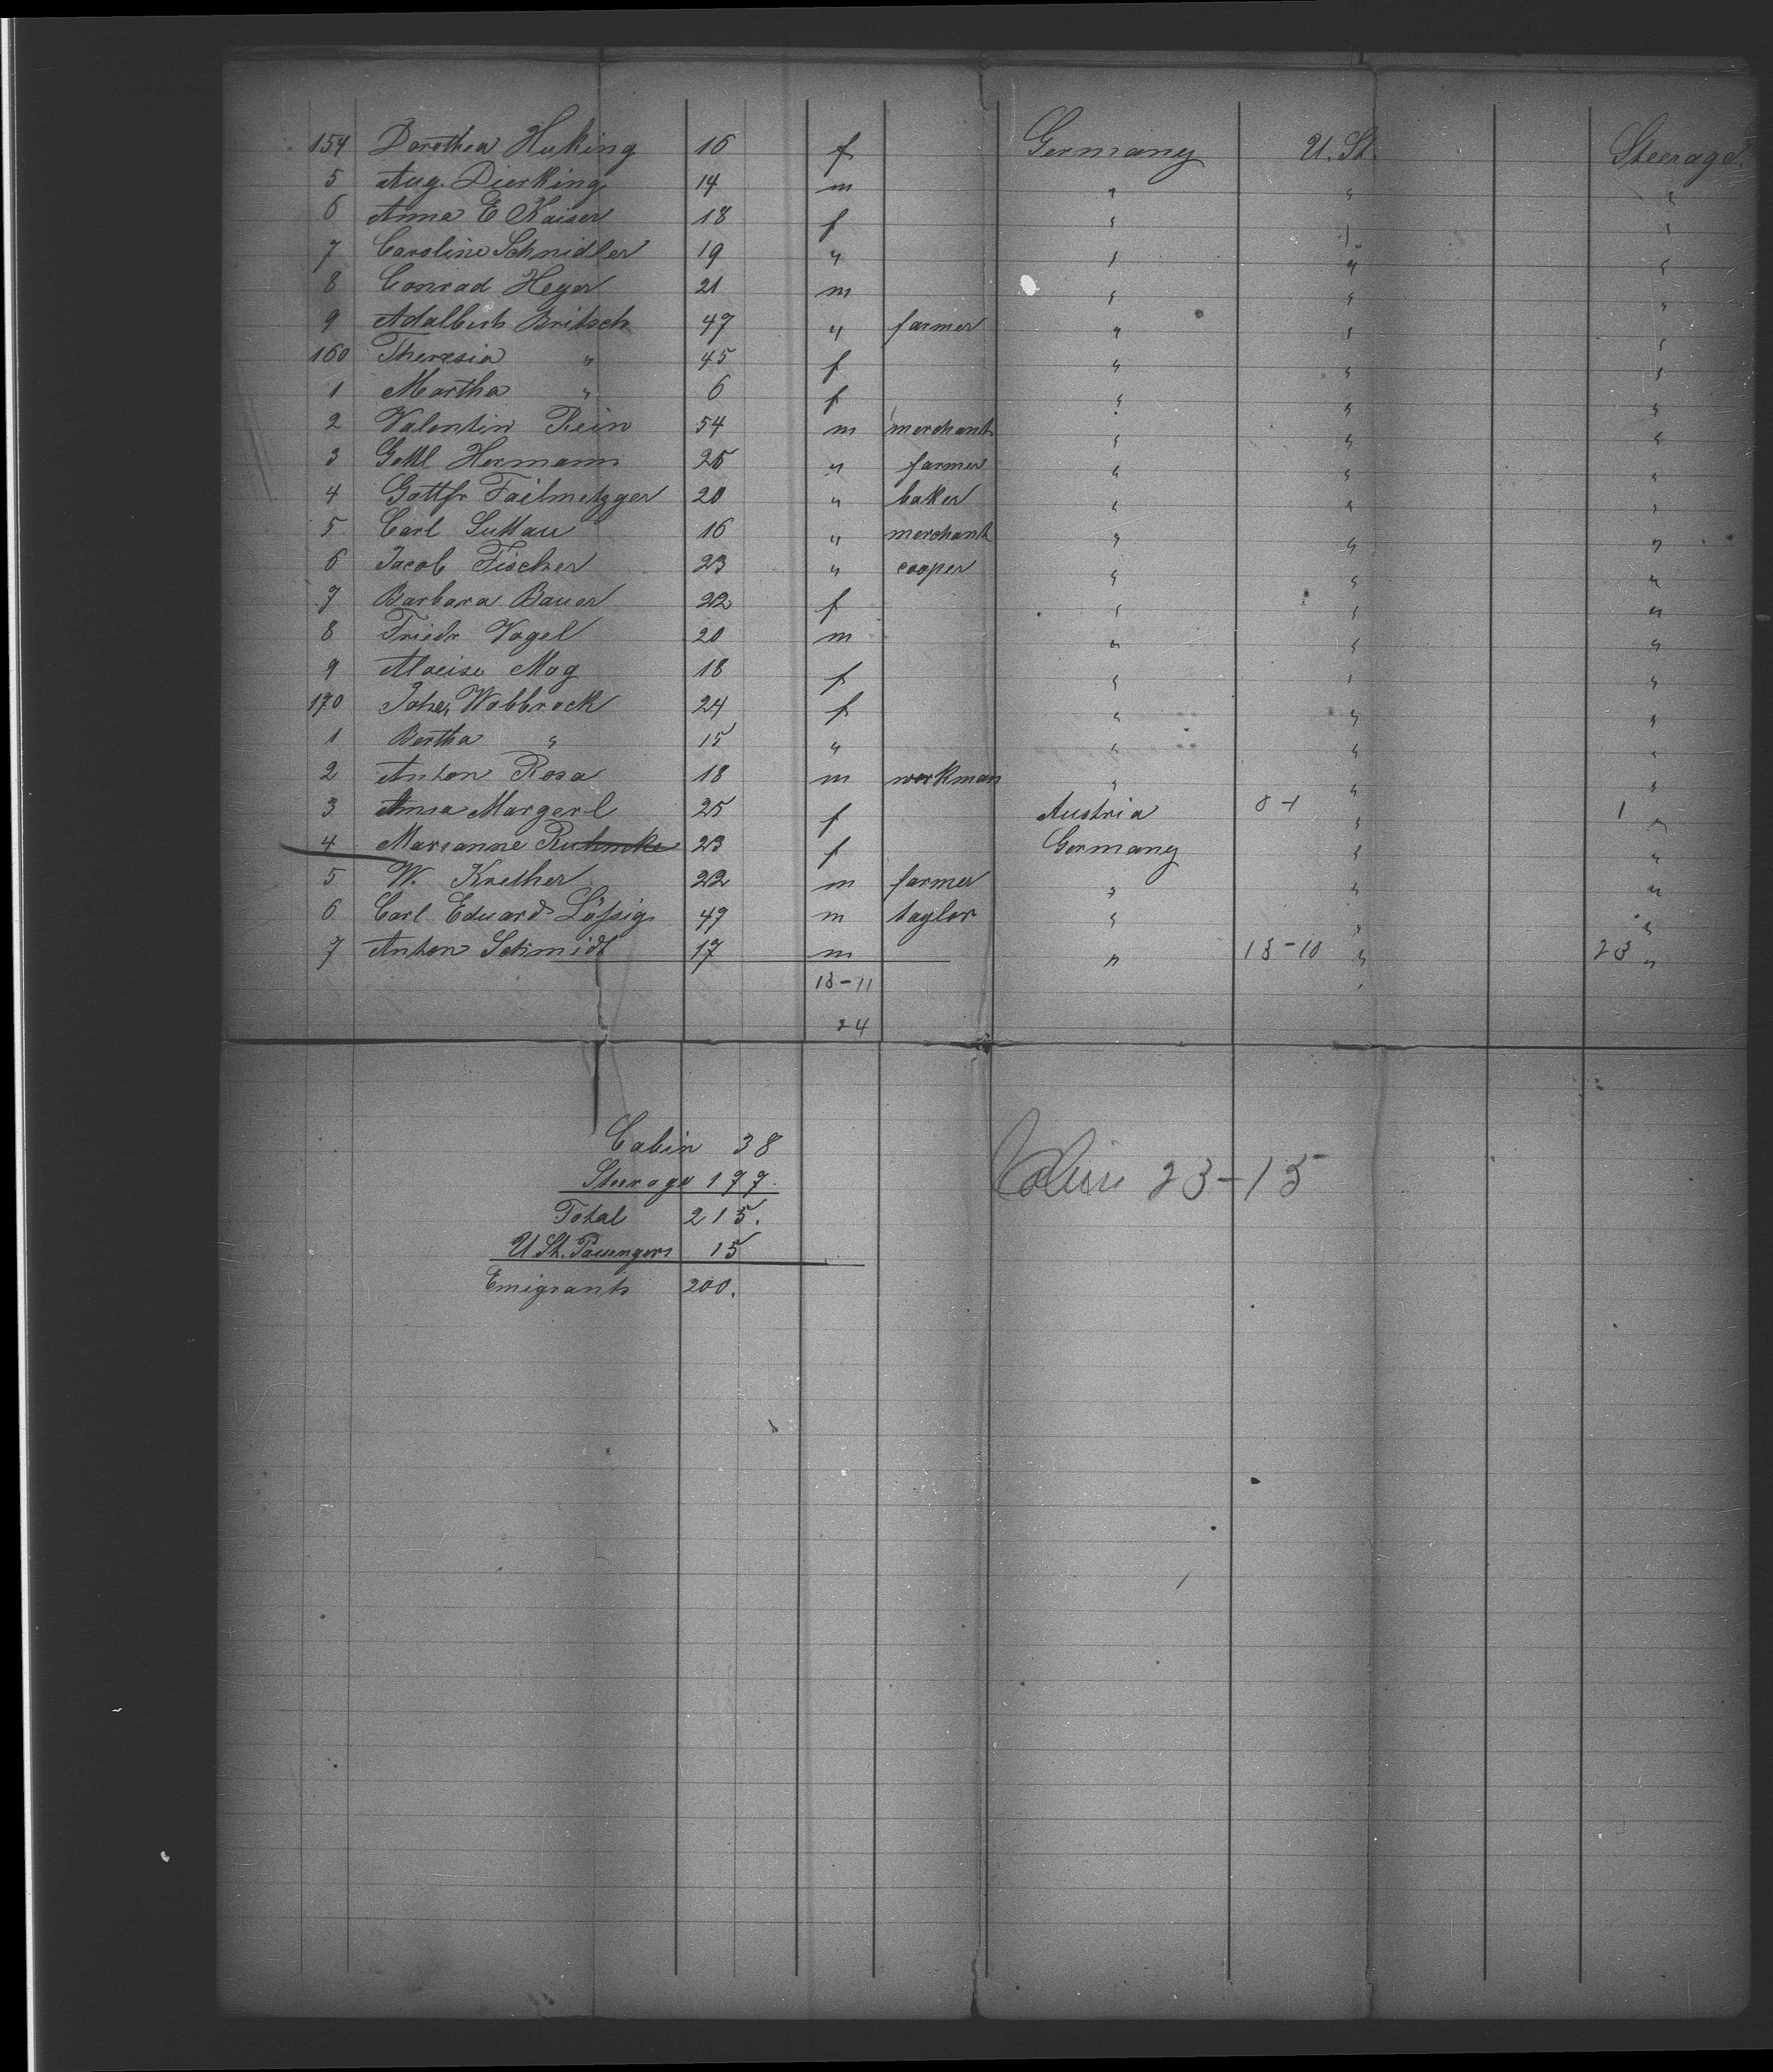 154 Dorothea Huking 16 f Germany U. St. Steerage.
5 Aug. Dierking 14 m " " "
6 Anna E Kaiser 18 f " " "
7 Caroline Schnidler 19 " " " "
8 Conrad Heyer 21 m " " "
9 Adalbert Britsch 47 " farmer " " "
160 Theresia " 45 f " " "
1 Martha " 6 f " " "
2 Valentin Rein 54 m merchant " " "
3 Gottl Hermann 25 " farmer " " "
4 Gottfr Failmetzger 20 " baker " " "
5 Carl Suttau 16 " merchant " " "
6 Jacob Fischer 23 " cooper " " "
7 Barbara Bauer 22 f " " "
8 Friedr Vogel 20 m " " "
9 Aloise Mog 18 f " " "
170 Johe, Wobbrock 24 f " " "
1 Bertha " 15 " " " "
2 Anton Rosa 18 m workman " " "
3 Anna Margerl 25 f Austria 0-1 " 1 "
4 Marianne 23 f Germany " "
5 W. Krether 22 m farmer " " "
6 Carl Eduard Lößig 49 m taylor " " "
7 Anton Schmidt 17 m " 13-10 " 23 "
13-11
24
Cabin 38
Steerage 177.
Total 215.
U. St. Passengers 15
Emigrants 200.
Cabin 23-15